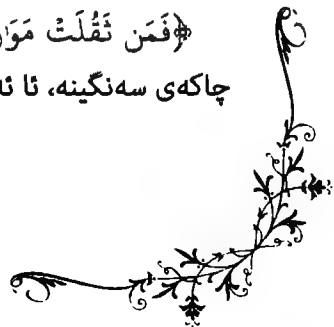 ﴿فَمَن ثَقُلَتْ
چاکەی سەنگینە، ئا